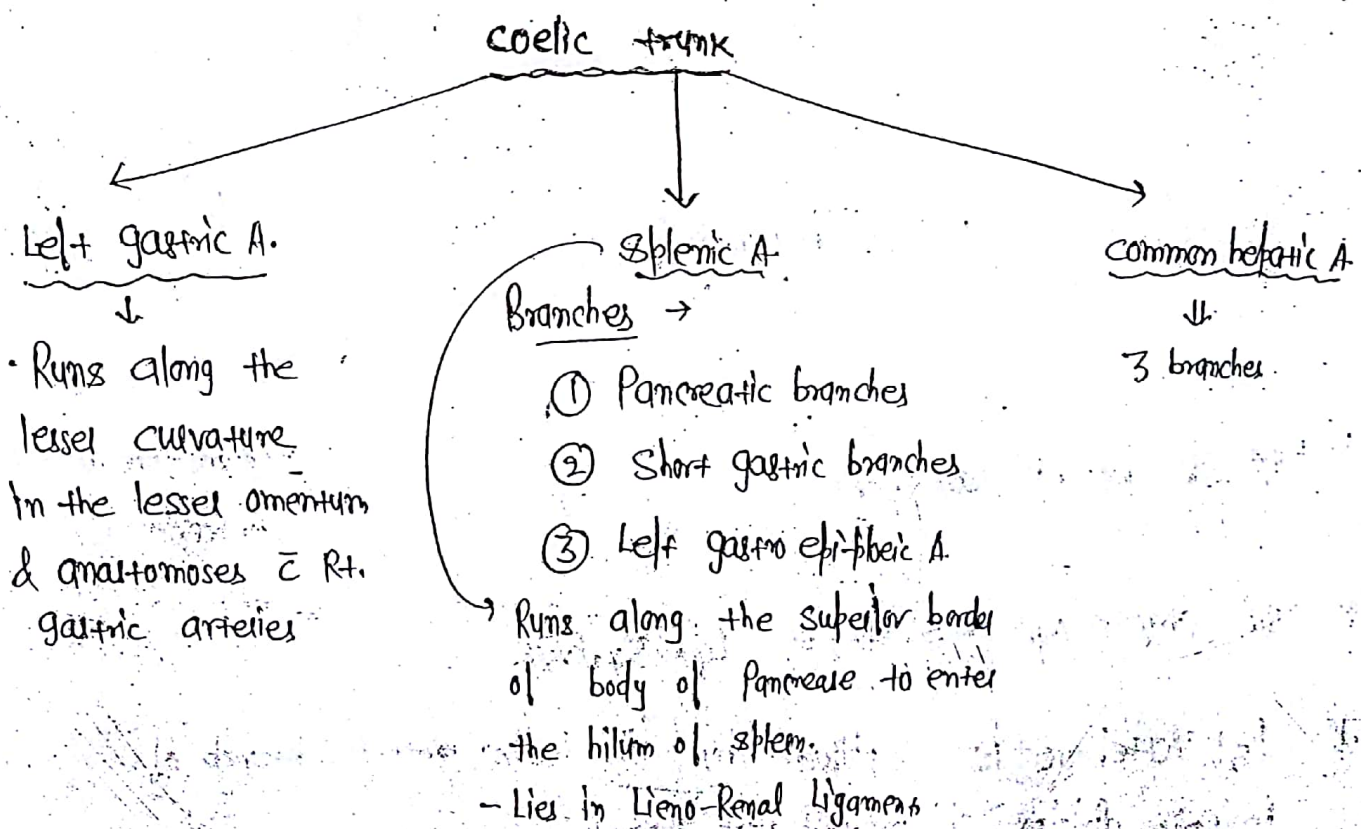 coelic trunk
Left gastric A.
↓
• Runs along the
lesser curvature
in the lesser omentum
& anastomoses c̄ Rt.
gastric arteries
Splenic A.
Branches →
① Pancreatic branches
② Short gastric branches
③ Left gastro epi-ploic A.
Runs along the superior border
of body of Pancrease to enter
the hilum of spleen.
- Lies in Lieno-Renal Ligament
common hepatic A.
⇓
3 branches.